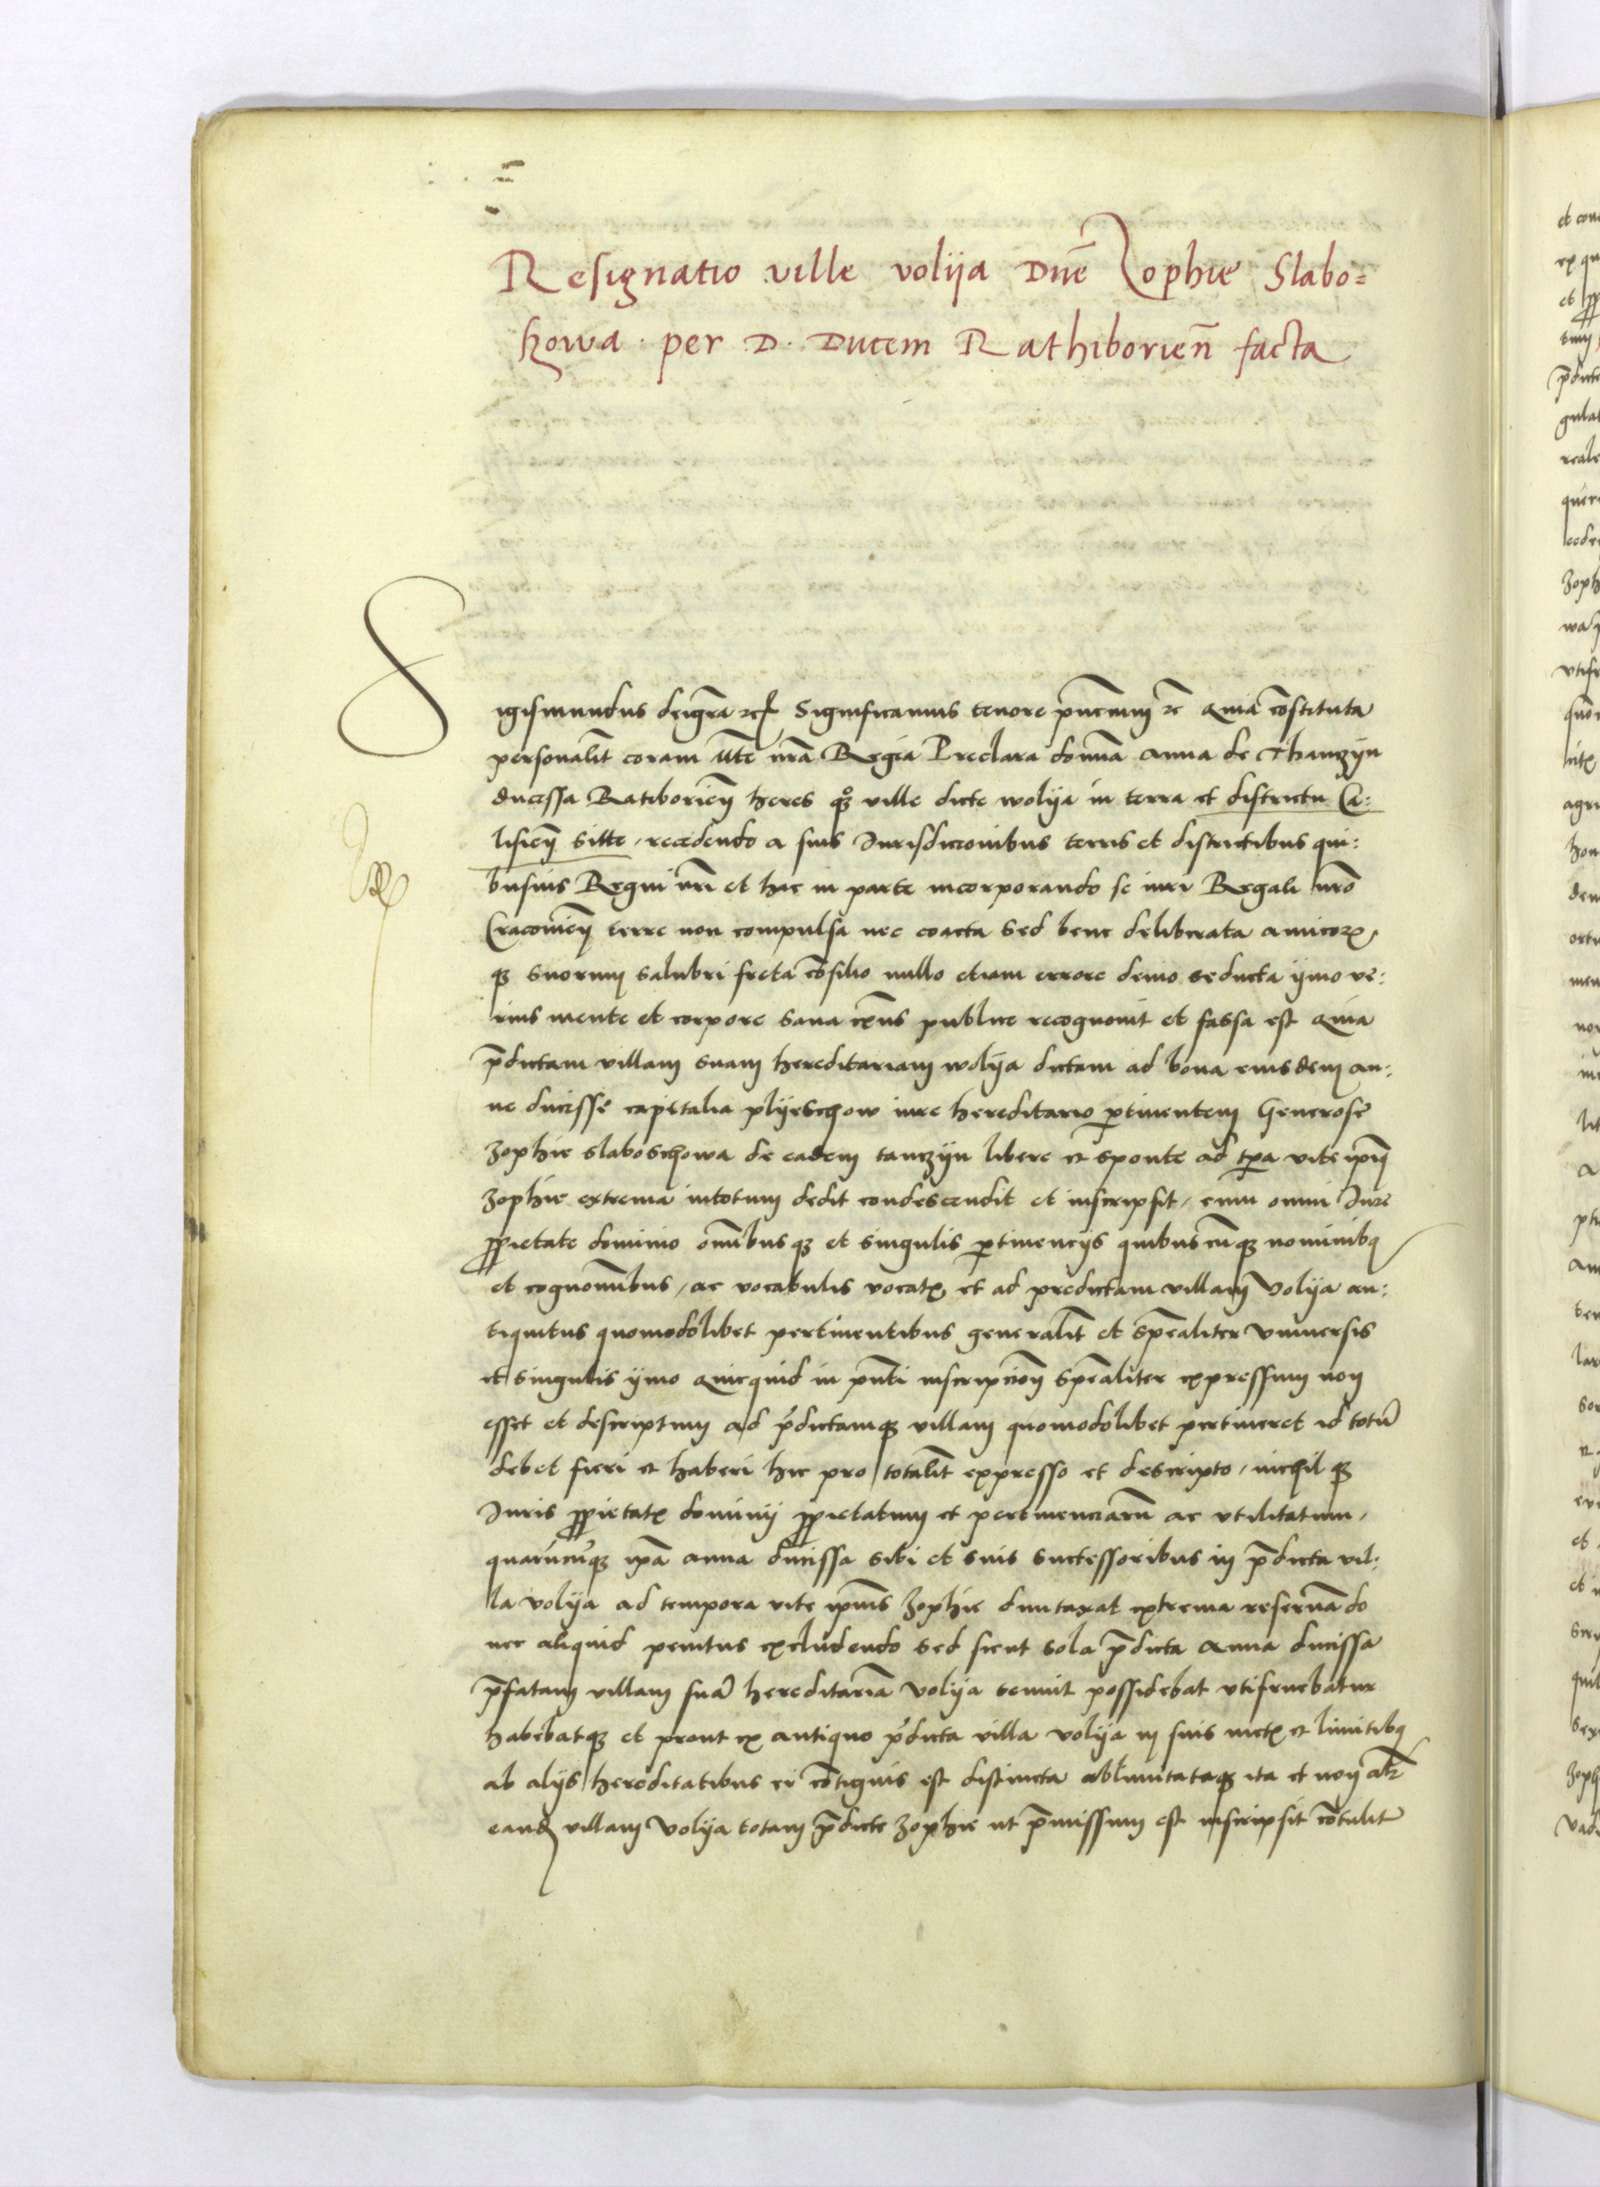 Resignatio ville volija Dne͂ Zophie Slabo=
howa per D. Ducem Rathiborien͂ facta
Sigismundus dei gr͂a Significamus tenore pn͂cium quia co͂stituta
personalit͂ coram Mte͂ nr͂a Regia Preclara domina Anna de Thanczijn
ducessa Ratiborien͂ heres ville dicte wolija in terra et districtu Ca:
lisien͂ sitte, recedendo a suis Jurisdiccionibus terris et districtibus qui:
busuis Regni nr͂i et hac in parte incorporando se iuri Regali nr͂o
Cracovien͂ terre non compulsa nec coacta Sed bene deliberata amicor͂
q3 suorum salubri freta co͂silio nullo etiam errore devio seducta ijmo ve:
rius mente et corpore sana publice recognouit et fassa est quia
p͂dictam villam suam hereditariam wolija dictam ad bona eiusdem an:
ne ducisse capitalia plijeschow iure hereditario pertinentem Generose
Zophie slaboschowa de eadem tanczijn libere et sponte ad tp͂a vite ip͂iꝰ
Zophie extrema in totum dedit condescendit et inscripsit, cum omni Jure
ꝓprietate dominio om͂ibusq3 et singulis ꝑtinencijs quibuscu͂q3 nominibꝰ
et cognom͂ibus, ac vocabulis vocat͂ et ad predictam villam Volija an:
tiquitus quomodolibet pertinentibus generalit͂ et spe͂aliter vniuersis
et singulis ijmo quicquid in pn͂ti inscripcio͂e spe͂aliter expressum non
esset et descriptum ad p͂dictamq3 villam quomodolibet pertineret id totu͂
debet fieri et haberi hic pro totalit͂ expresso et descripto, nichilq3
Juris ꝓprietat͂ dominij ꝓprietatum et pertinenciaru͂ ac vtilitatum,
quaru͂cu͂q3 ip͂a anna ducissa sibi et suis successoribus in p͂dicta vil:
la volija ad tempora vite ip͂ius Zophie duntaxat extrema reserua͂do
nec aliquid penitus excludendo sed sicut sola p͂dicta Anna ducissa
p͂fatam villam sua͂ hereditaria͂ Volija tenuit possidebat vtifruebatur
habebatq3 et prout ex antiquo p͂dicta villa volija in suis met͂ et limitibꝰ
ab alijs hereditatibus ei co͂tiguis est distincta ablimitataq3 ita et non alr͂
eand͂ villam Volija totam p͂dicte Zophie ut p͂missum est inscripsit co͂tulit